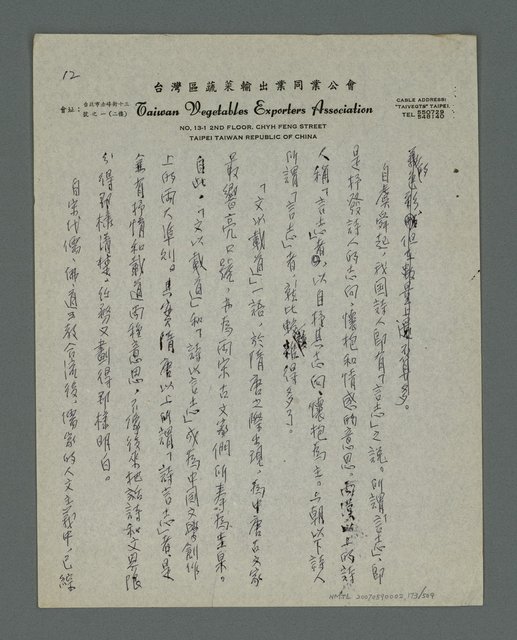 12
台灣區蔬菜輸出業同業公會
會址：台北市赤峰街十三號之一（二樓）
Taiwan Vegetables Exporters Association
NO. 13-1 2ND FLOOR. CHYH FENG STREET
TAIPEI TAIWAN REPUBLIC OF CHINA
CABLE ADDRESS:
"TAIVEGTS" TAIPEI.
TEL 550729
548140
義的色彩略但在數量上還不算多。
自虞舜起，我国詩人即有「言志」之說。所謂「言志」，即
是抒發詩人的志向、懷抱和情感的意思。兩漢以上的詩
人稱「言志」者，以自抒其志向、懷抱為主。六朝以下詩人
所謂「言志」者，就比較雜得多了。
「文以載道」一語，於隋唐之際出現，為中唐古文家
最響亮口號，亦為兩宋古文家們所奉為圭臬。
自此，「文以載道」和「詩以言志」成為中国文學創作
上的兩大準則。其實隋唐以上所謂「詩言志」者，是
兼有抒情和載道兩種意思，不像後來把詩和文界限
分得那樣清楚，任務又劃得那樣明白。
自宋代儒、佛、道三教合流後，儒家的人文主義中，已經
NMTL 20070590002, 173/509